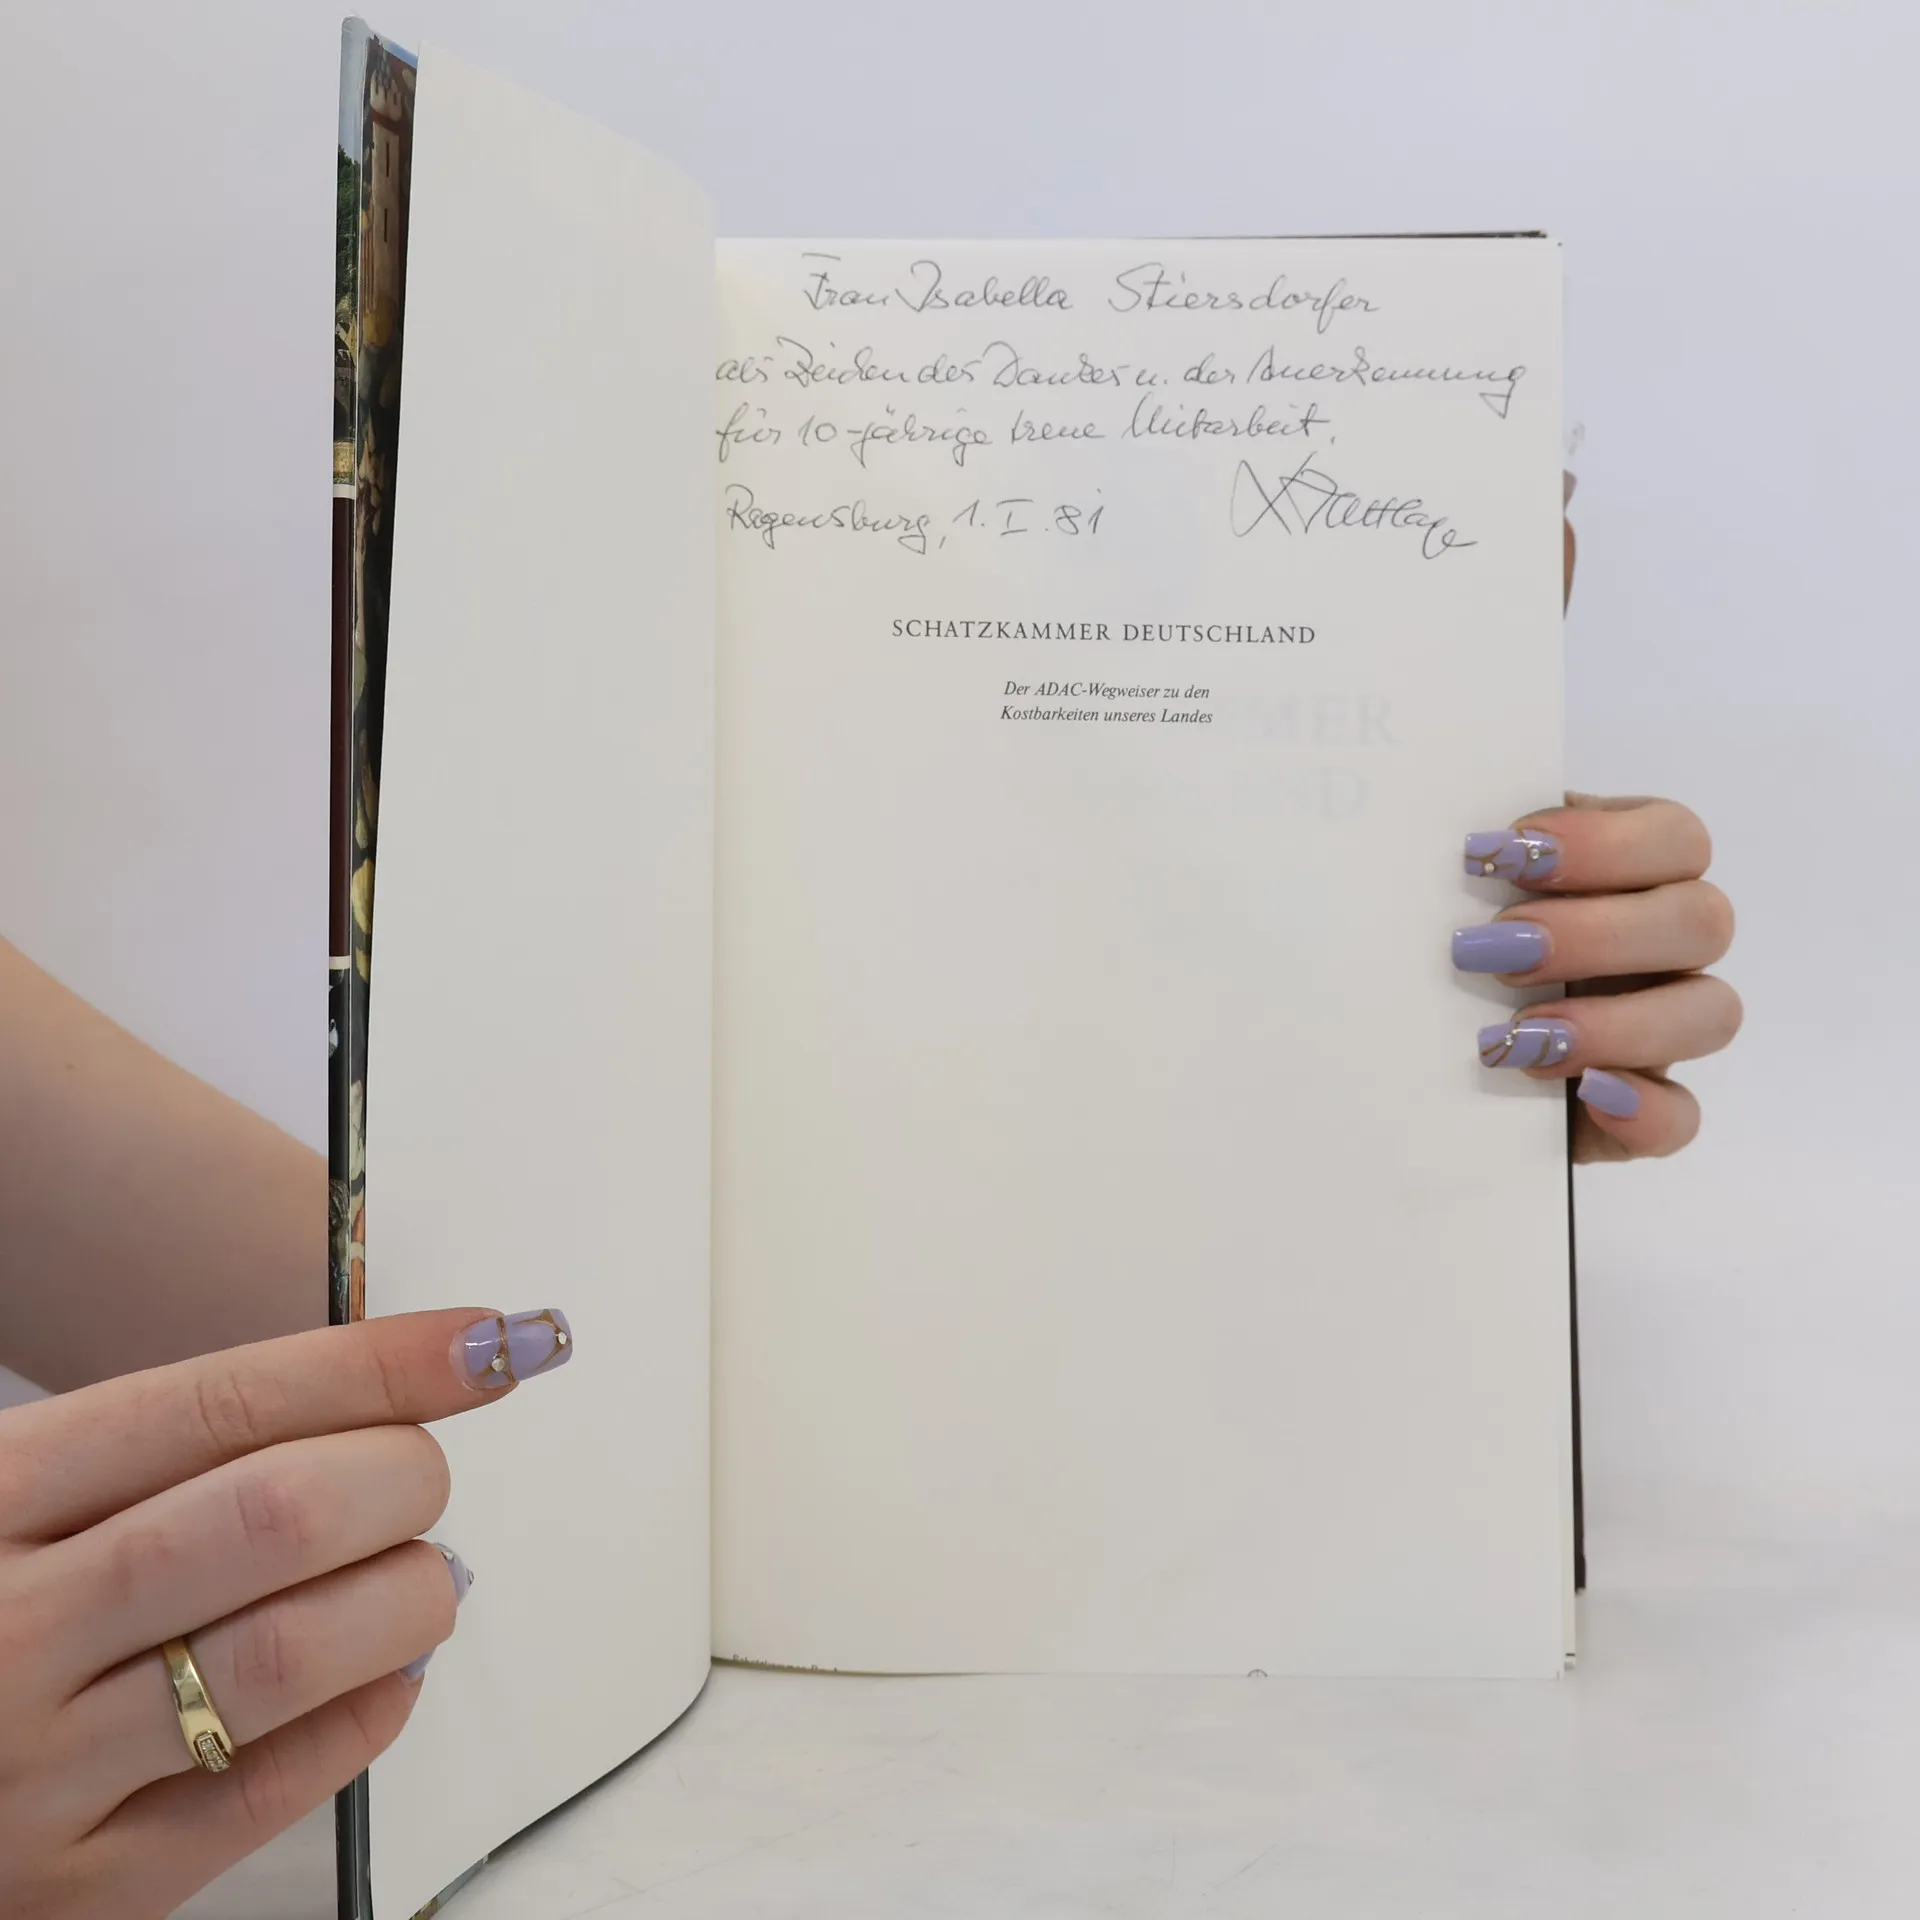 Frau Isabella Stiersdorfer
als Zeichen des Dankes u. der Anerkennung
für 10-jährige treue Mitarbeit.
Regensburg, 1. I. 81
SCHATZKAMMER DEUTSCHLAND
Der ADAC-Wegweiser zu den
Kostbarkeiten unseres Landes